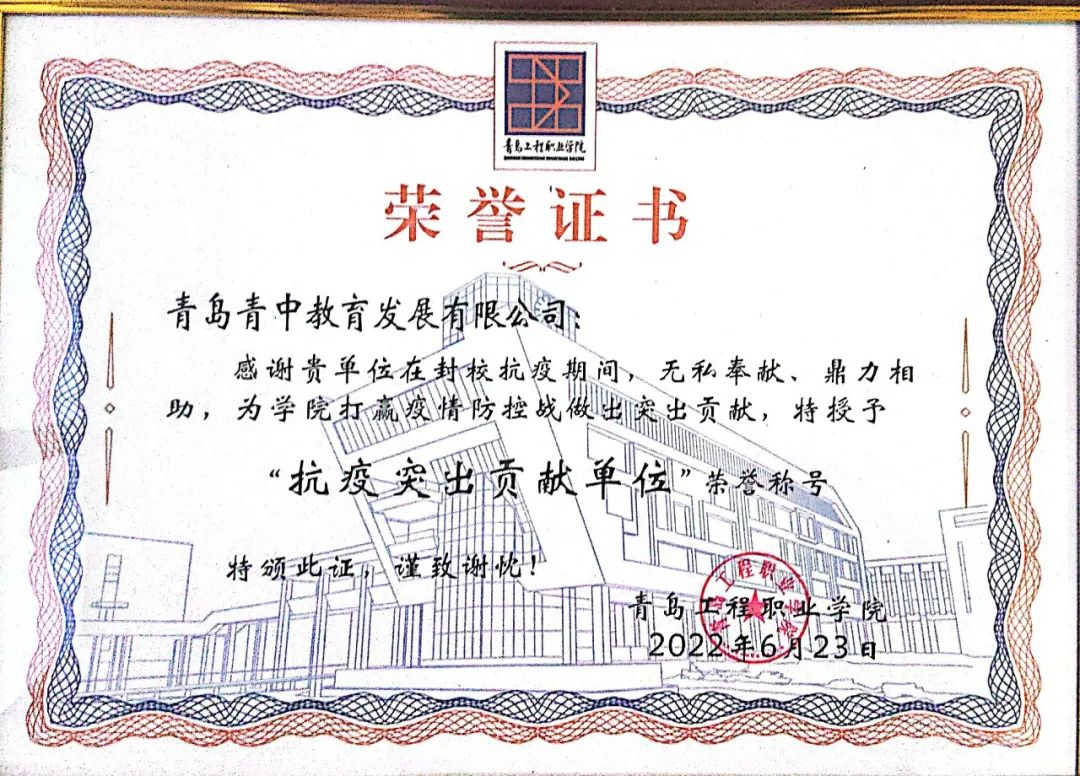 青岛工程职业学院
荣誉证书
青岛青中教育发展有限公司：
感谢贵单位在封校抗疫期间，无私奉献、鼎力相
助，为学院打赢疫情防控战做出突出贡献，特授予
“抗疫突出贡献单位”荣誉称号
特颁此证，谨致谢忱！
青岛工程职业学院
2022年6月23日